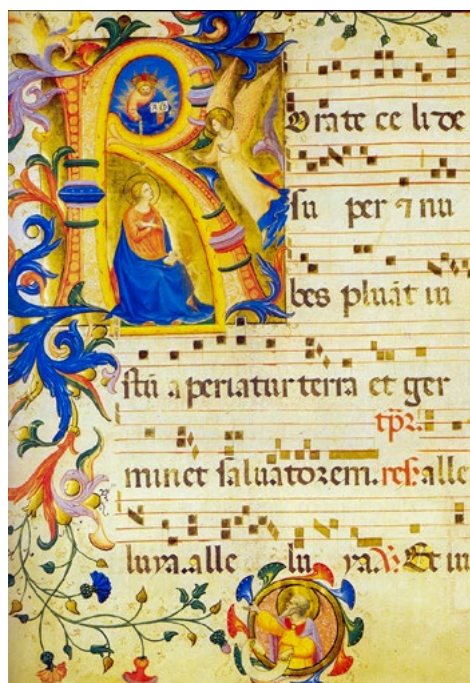 Rorate ce li de
su per ⁊ nu
bes pluāt iu
stū a periatur terra et ger
tp̄r.
minet saluatorem. res. alle
luya. alle lu ya. V. Et iu